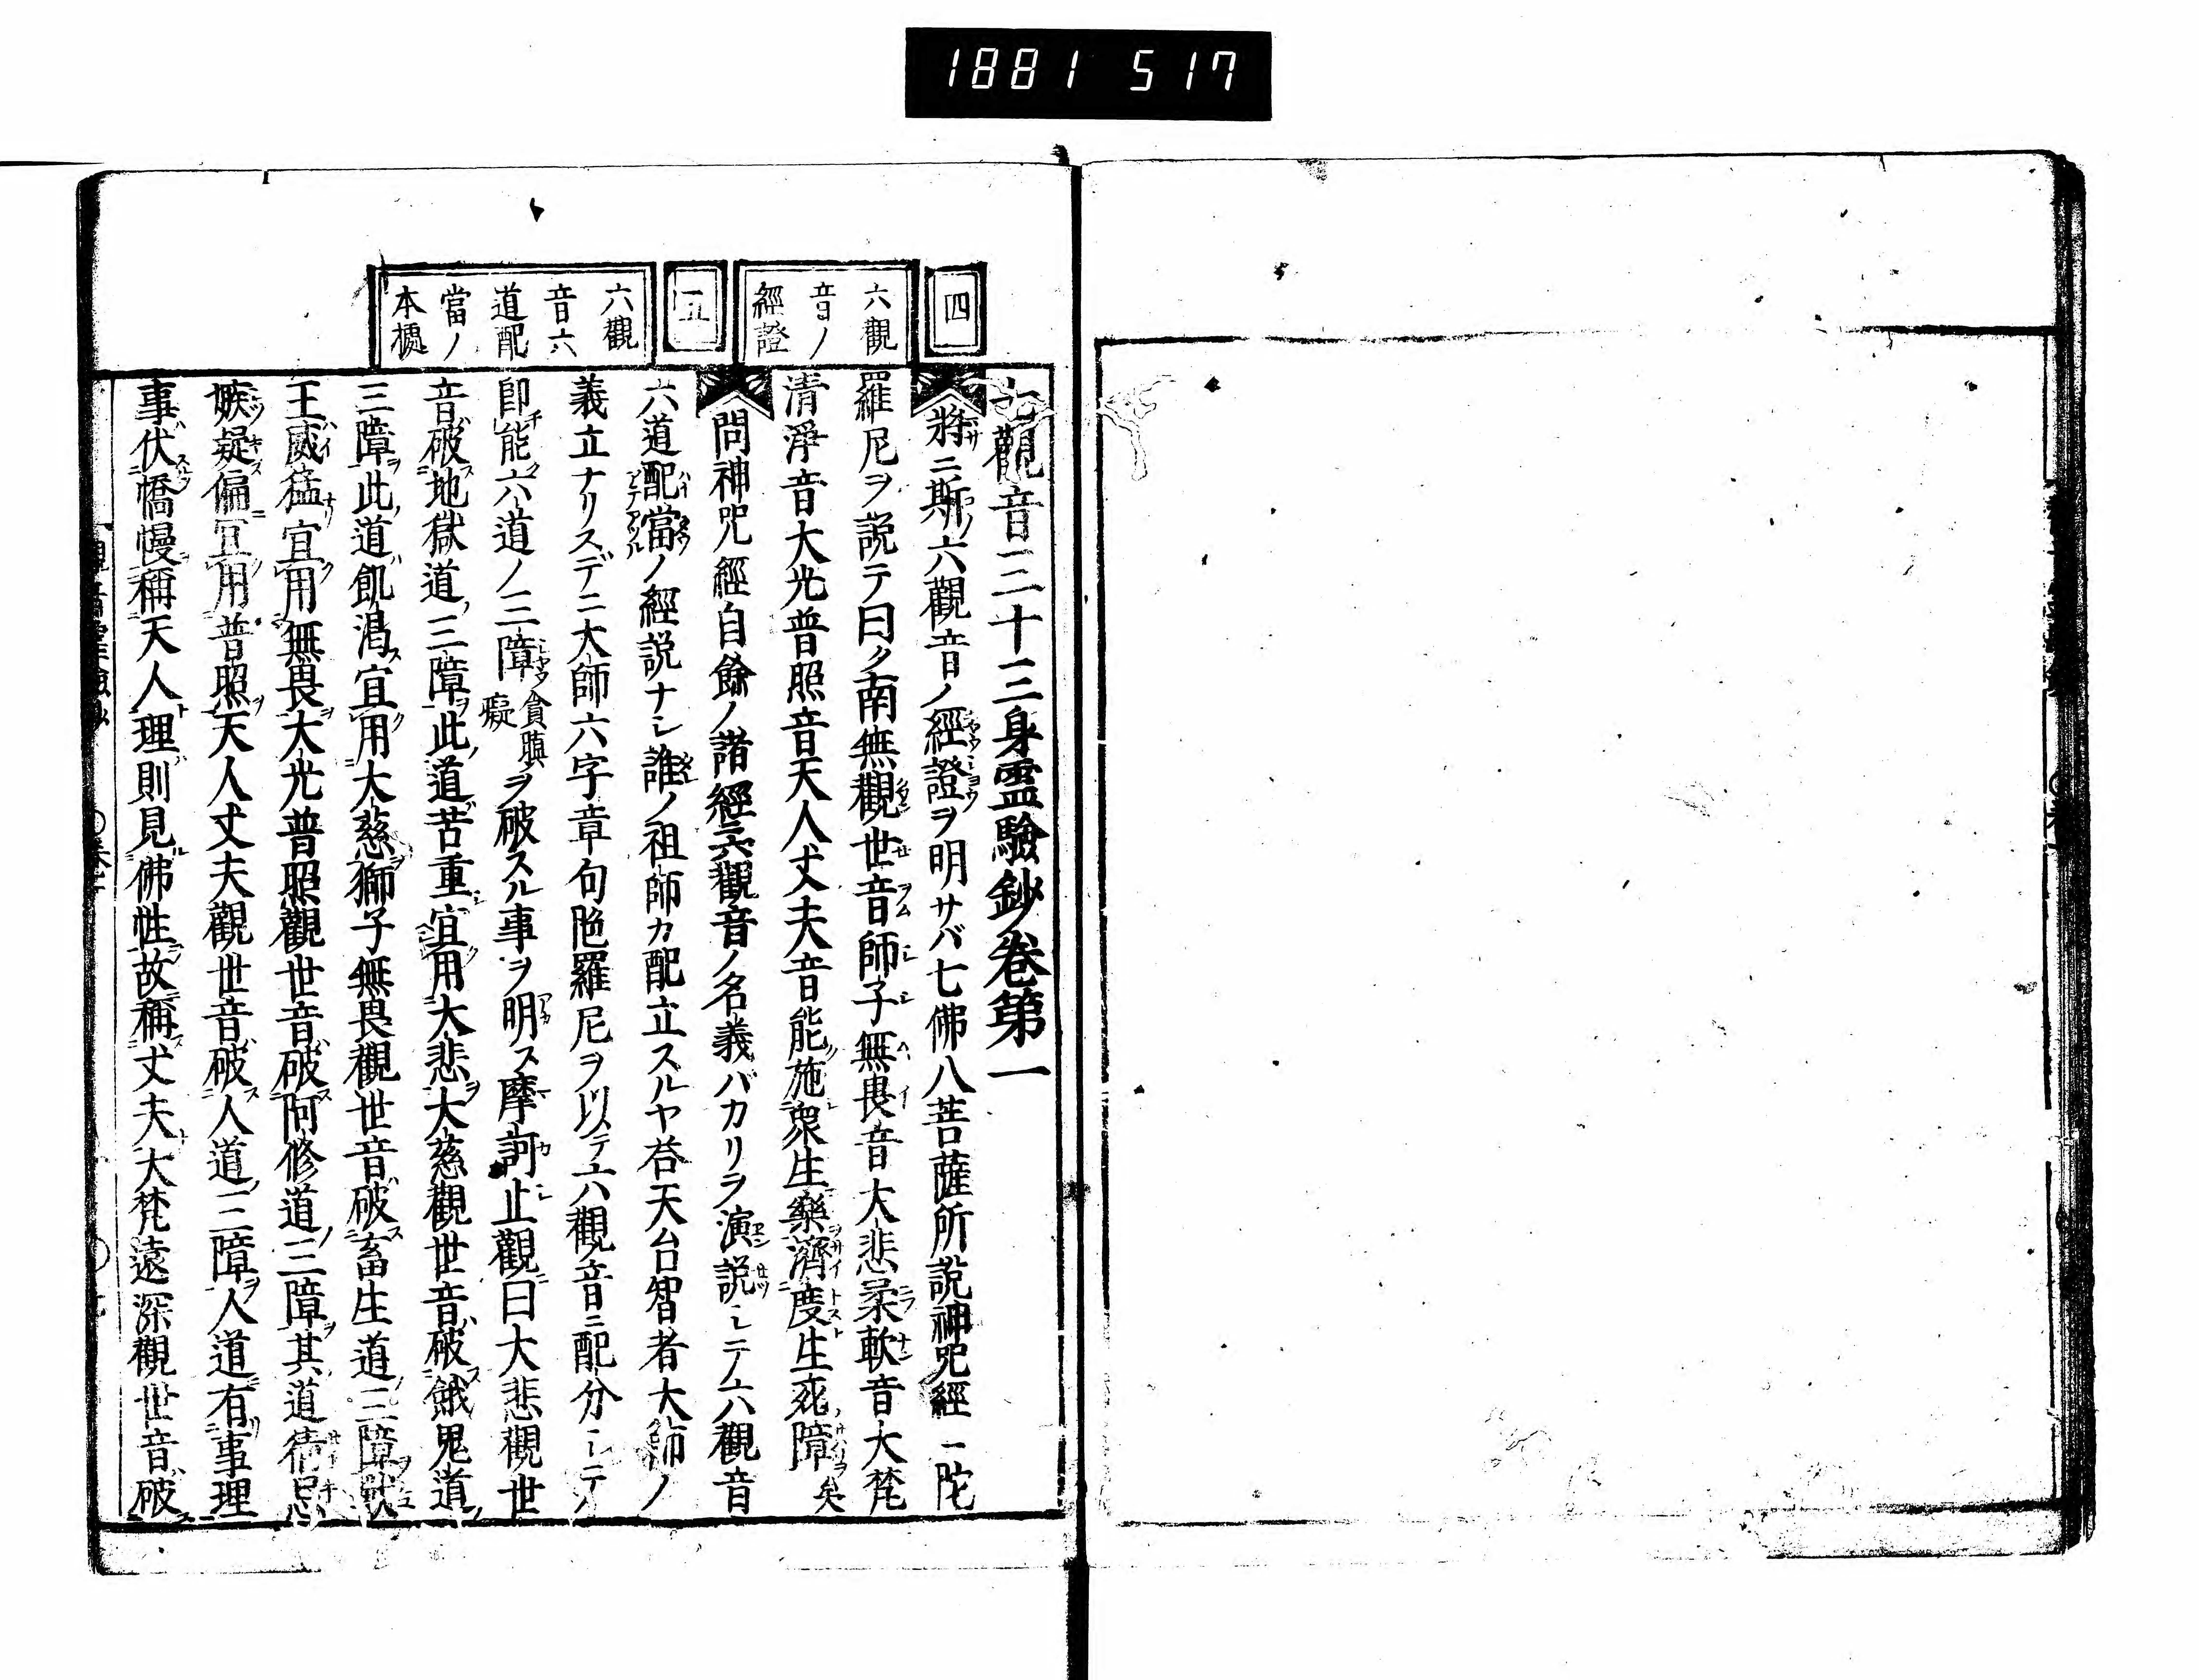 1881 517
四
六觀
音ノ
經證
五
六觀
音六
道配
當ノ
本據
七觀音三十三身霊驗鈔卷第一
將ニ斯ノ六觀音ノ經證ヲ明サバ七佛八菩薩所説神咒經ニ陀
羅尼ヲ説テ曰ク南無觀世音師子無畏音大悲柔軟音大梵
清淨音大光普照音天人丈夫音能施衆生樂濟度生死障矣
問神咒經自餘ノ諸經六觀音ノ名義バカリヲ演説シテ六觀音
六道配當ノ經説ナシ誰ノ祖師カ配立スルヤ荅天台智者大師ノ
義立ナリスデニ大師六字章句陀羅尼ヲ以テ六觀音ニ配分シテ
即能六道ノ三障貪瞋癡ヲ破スル事ヲ明ス摩訶止觀曰大悲觀世
音破地獄道三障此道苦重宜用大悲大慈觀世音破餓鬼道
三障此道飢渇宜用大慈獅子無畏觀世音破畜生道三障獸
王威猛宜用無畏大光普照觀世音破阿修道三障其道猜忌
嫉疑偏宜用普照天人丈夫觀世音破人道三障人道有事理
事伏憍慢稱天人理則見佛性故稱丈夫大梵遠深觀世音破